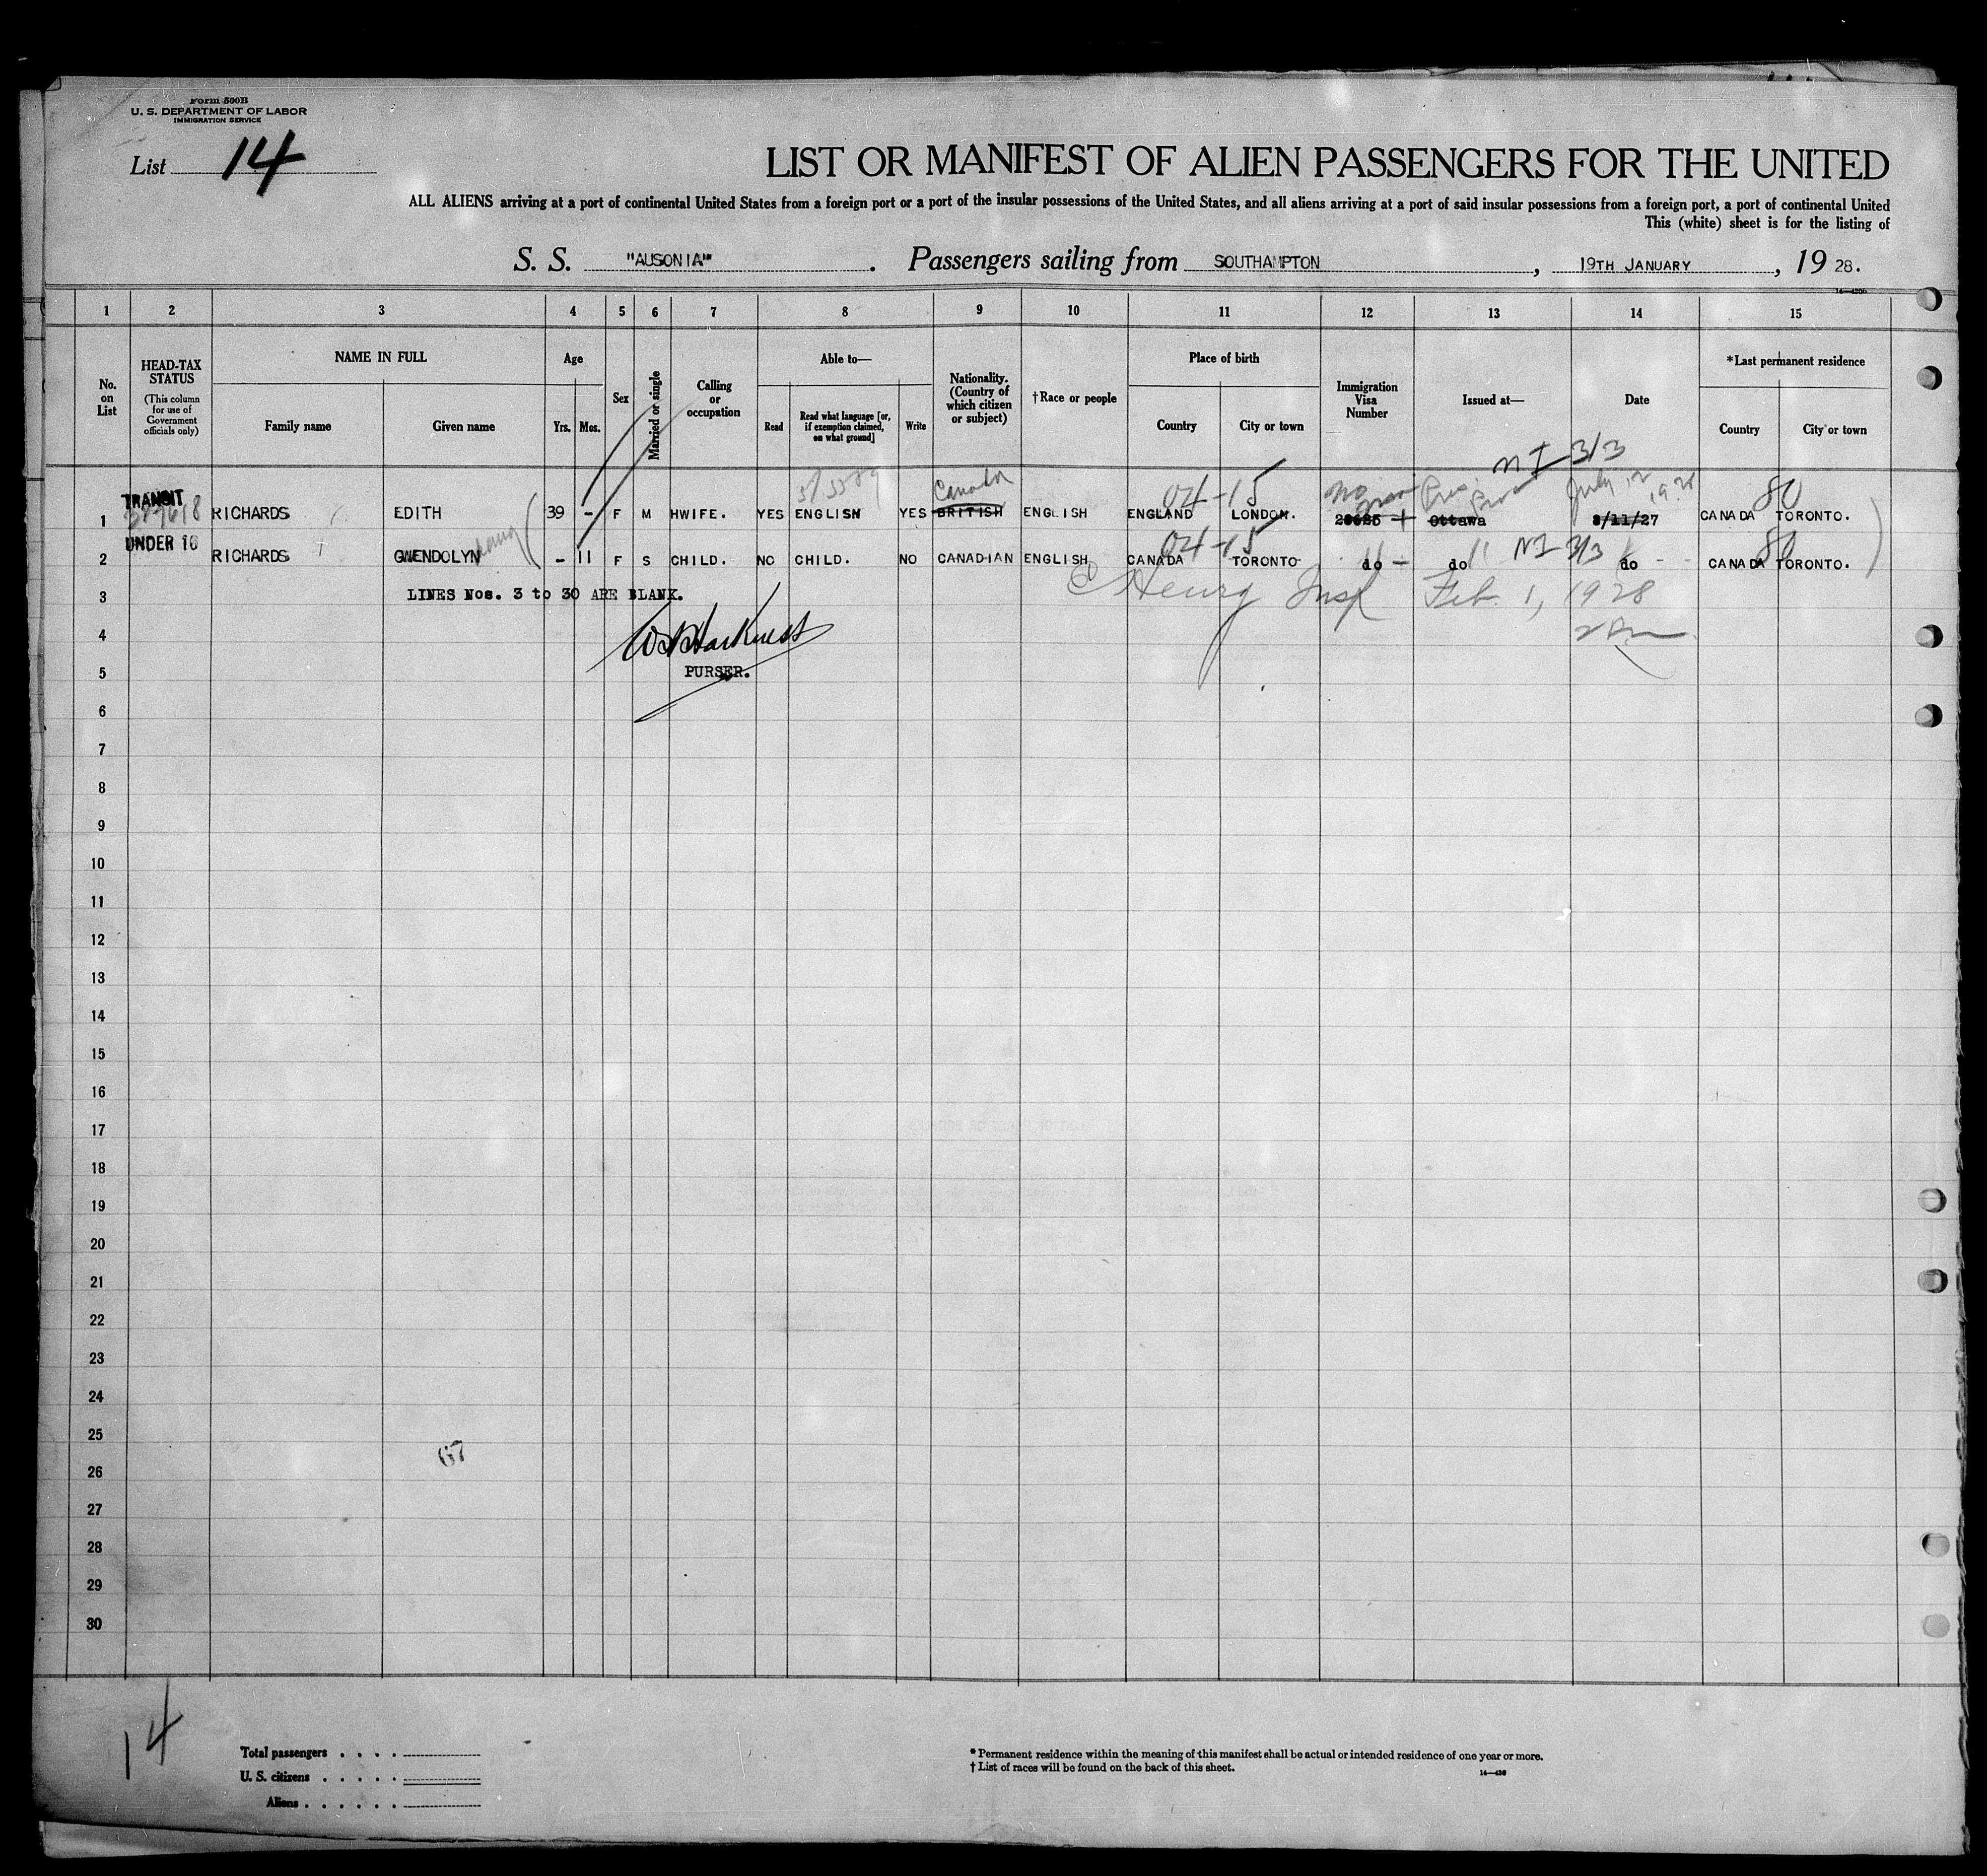 Form 500B
U. S. DEPARTMENT OF LABOR
IMMIGRATION SERVICE
List 14
LIST OR MANIFEST OF ALIEN PASSENGERS FOR THE UNITED
ALL ALIENS arriving at a port of continental United States from a foreign port or a port of the insular possessions of the United States, and all aliens arriving at a port of said insular possessions from a foreign port, a port of continental United
This (white) sheet is for the listing of
S. S. "AUSONIA". Passengers sailing from SOUTHAMPTON, 19TH JANUARY, 19 28.
1 2 3 4 5 6 7 8 9 10 11 12 13 14 15
No. on List
HEAD-TAX STATUS
(This column for use of Government officials only)
NAME IN FULL
Family name
Given name
Age
Yrs.
Mos.
Sex
Married or single
Calling or occupation
Able to—
Read
Read what language [or, if exemption claimed, on what ground]
Write
Nationality. (Country of which citizen or subject)
†Race or people
Place of birth
Country
City or town
Immigration Visa Number
Issued at—
Date
*Last permanent residence
Country
City or town
NI 3/3
Canada 04-15 No July 12 1928 80
1 TRANSIT RICHARDS EDITH 39 - F M HWIFE. YES ENGLISH YES BRITISH ENGLISH ENGLAND LONDON. Ottawa 8/11/27 CANADA TORONTO.
04-15 NI 3/3 80
2 UNDER 16 RICHARDS GWENDOLYN - 11 F S CHILD. NO CHILD. NO CANADIAN ENGLISH CANADA TORONTO do do do CANADA TORONTO.
3 LINES Nos. 3 to 30 ARE BLANK.
C Henry Insp Feb. 1, 1928
4
5 PURSER.
6
7
8
9
10
11
12
13
14
15
16
17
18
19
20
21
22
23
24
25
67
26
27
28
29
30
14
Total passengers . . . .
U. S. citizens . . . . .
Aliens . . . . . .
* Permanent residence within the meaning of this manifest shall be actual or intended residence of one year or more.
† List of races will be found on the back of this sheet.
14—430